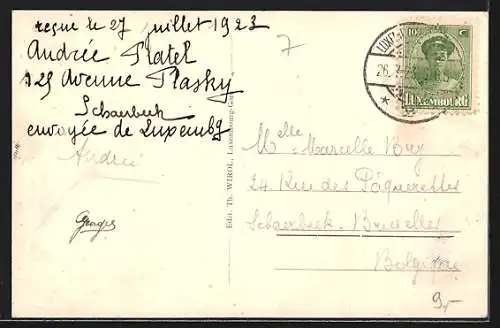 reçue le 27 juillet 1923
Andrée Ratel
125 Avenue Plasky
Schaerbeek
envoyée de Luxembg
Andrée
Georges
Edit. Th. WIROL, Luxembourg-Gare
7
10 C
LUXEMBOURG
26.7.23
Melle Marcelle Buy
24 Rue des Pâquerettes
Schaerbeek - Bruxelles
Belgique
9,-